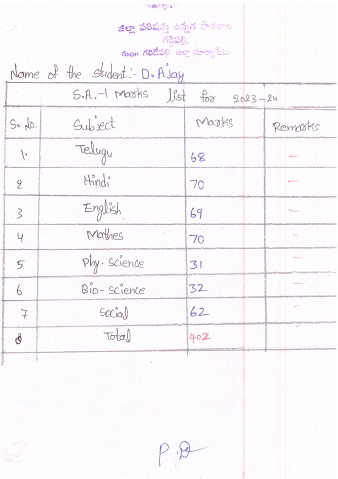 జిల్లా పరిషత్తు ఉన్నత పాఠశాల
గడ్డిపల్లి,
మం॥ గరిడేపల్లి జిల్లా సూర్యాపేట.
Name of the student:- D. Ajay
S.A-1 Marks list for 2023-24
S. No. Subject Marks Remarks
1. Telugu 68 -
2 Hindi 70 -
3 English 69 -
4 Mathes 70
5 Phy. science 31
6 Bio-science 32
7 Social 62
8 Total 402